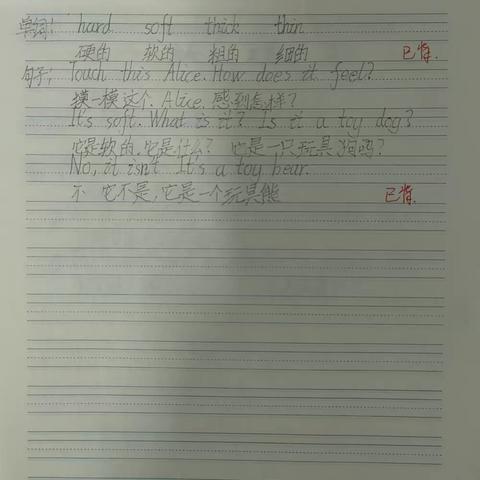 单词: hard soft thick thin
硬的 软的 粗的 细的 已背.
句子: Touch this Alice. How does it feel?
摸一摸这个, Alice. 感到怎样?
It's soft. What is it? Is it a toy dog?
它是软的, 它是什么? 它是一只玩具狗吗?
No, it isn't. It's a toy bear.
不 它不是, 它是一个玩具熊 已背.